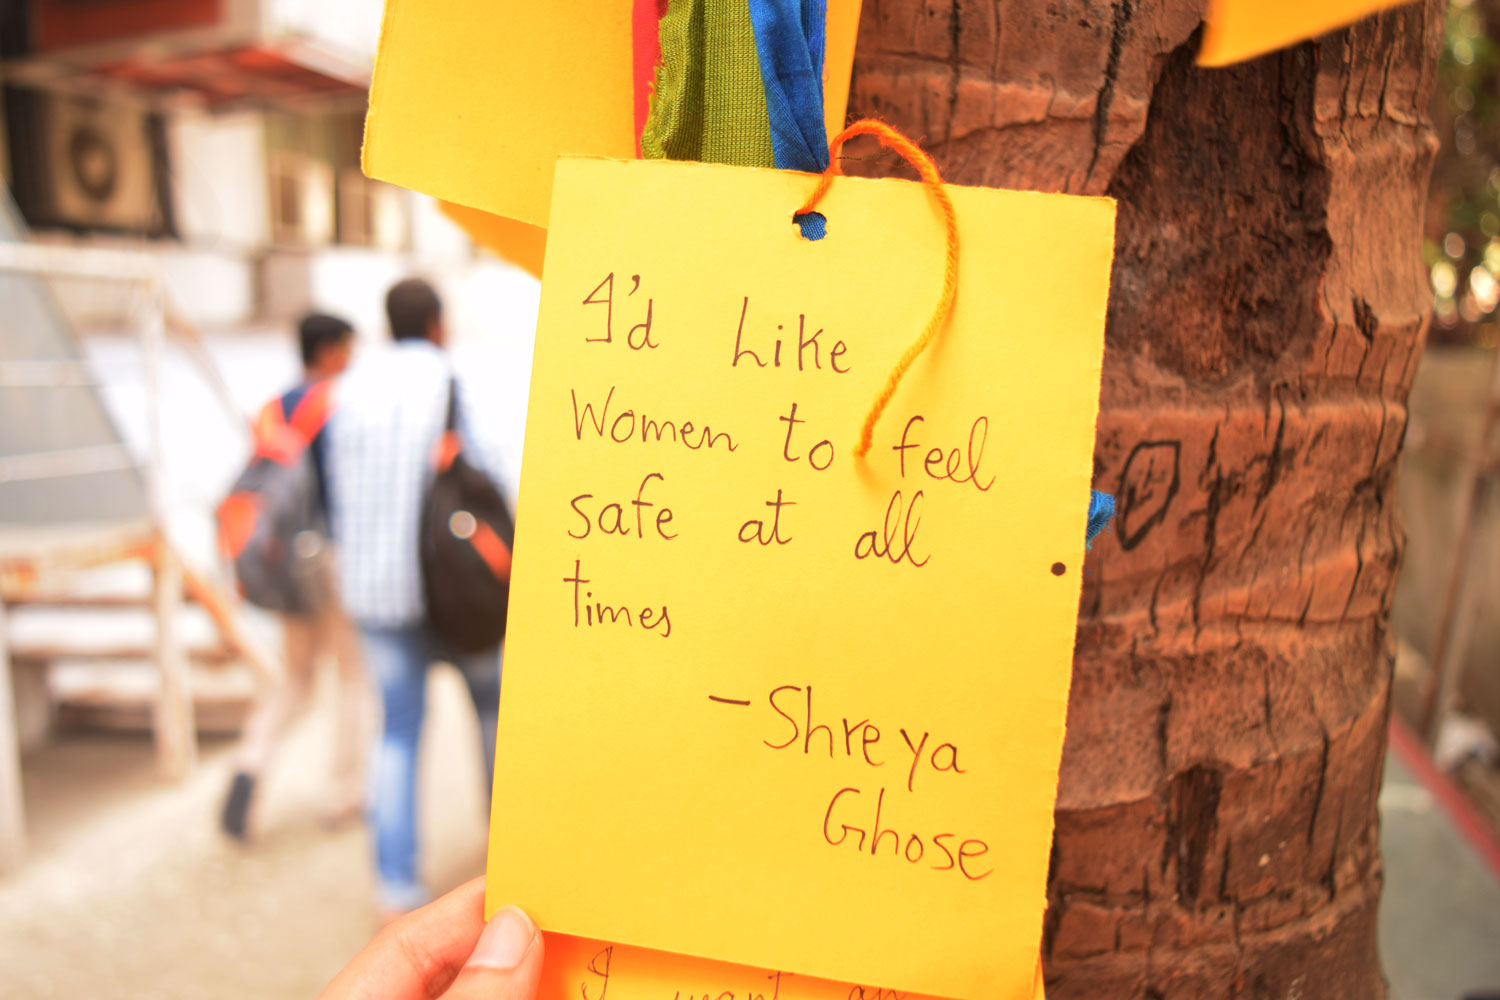 I'd Like
Women to feel
safe at all
times
- Shreya
Ghose
I want an